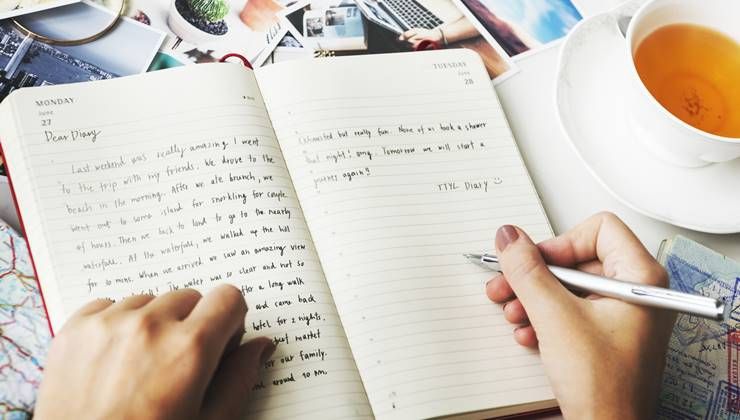 MONDAY
June
27
Dear Diary
Last weekend was really amazing I went
to the trip with my friends. We drove to the
beach in the morning. After we ate brunch, we
went out to some island for snorkling for couple
of hours. Then we back to land to go to the nearly
waterfall. At the waterfall, we walked up the hill
for 30 mins. When we arrived we saw an amazing view
of the waterfall! The water was so clear and not so
after a long walk
and came back
hotel for 2 nights.
market
for our family.
around 10 pm.
TUESDAY
June
28
Exhausted but really fun. None of us took a shower
that night! omg. Tomorrow we will start a
journey again!!
TTYL Diary